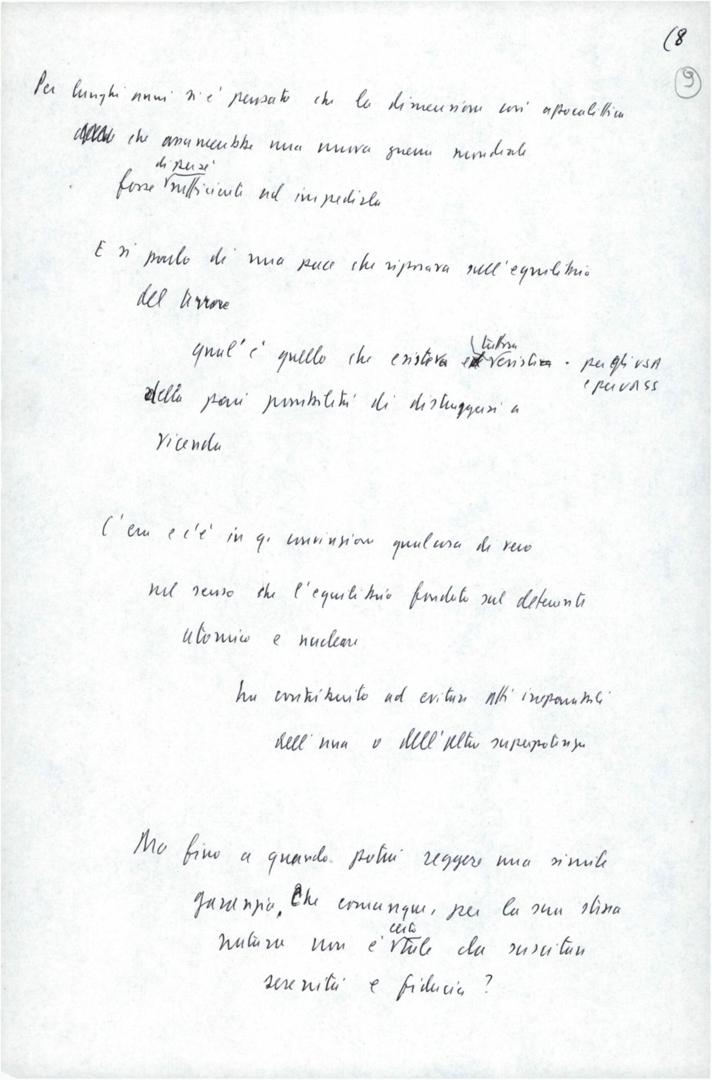 (8
9
Per lunghi anni si è pensato che la dimensione così apocalittica
che assumerebbe una nuova guerra mondiale
di per sé
fosse sufficiente ad impedirla
E si parlò di una pace che riposava sull'equilibrio
del terrore
qual'è quello che esisteva ed esiste tuttora - per gli USA
e per URSS
della pari possibilità di distruggersi a
vicenda
C'era e c'è in q. convinzione qualcosa di vero
nel senso che l'equilibrio fondato sul deterrente
atomico e nucleare
ha contribuito ad evitare atti irreparabili
dell'una o dell'altra superpotenza
Ma fino a quando potrà reggere una simile
garanzia, che comunque, per la sua stessa
certo
natura non è tale da suscitare
serenità e fiducia?